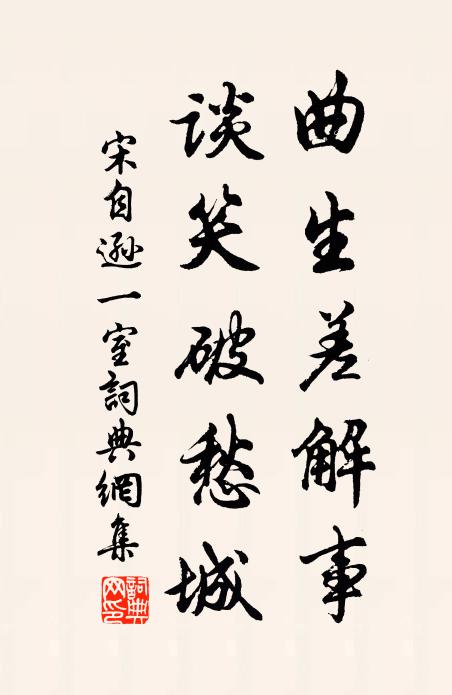 曲生差解事
談笑破愁城
宋自遜一室詞典網集
詞典网印